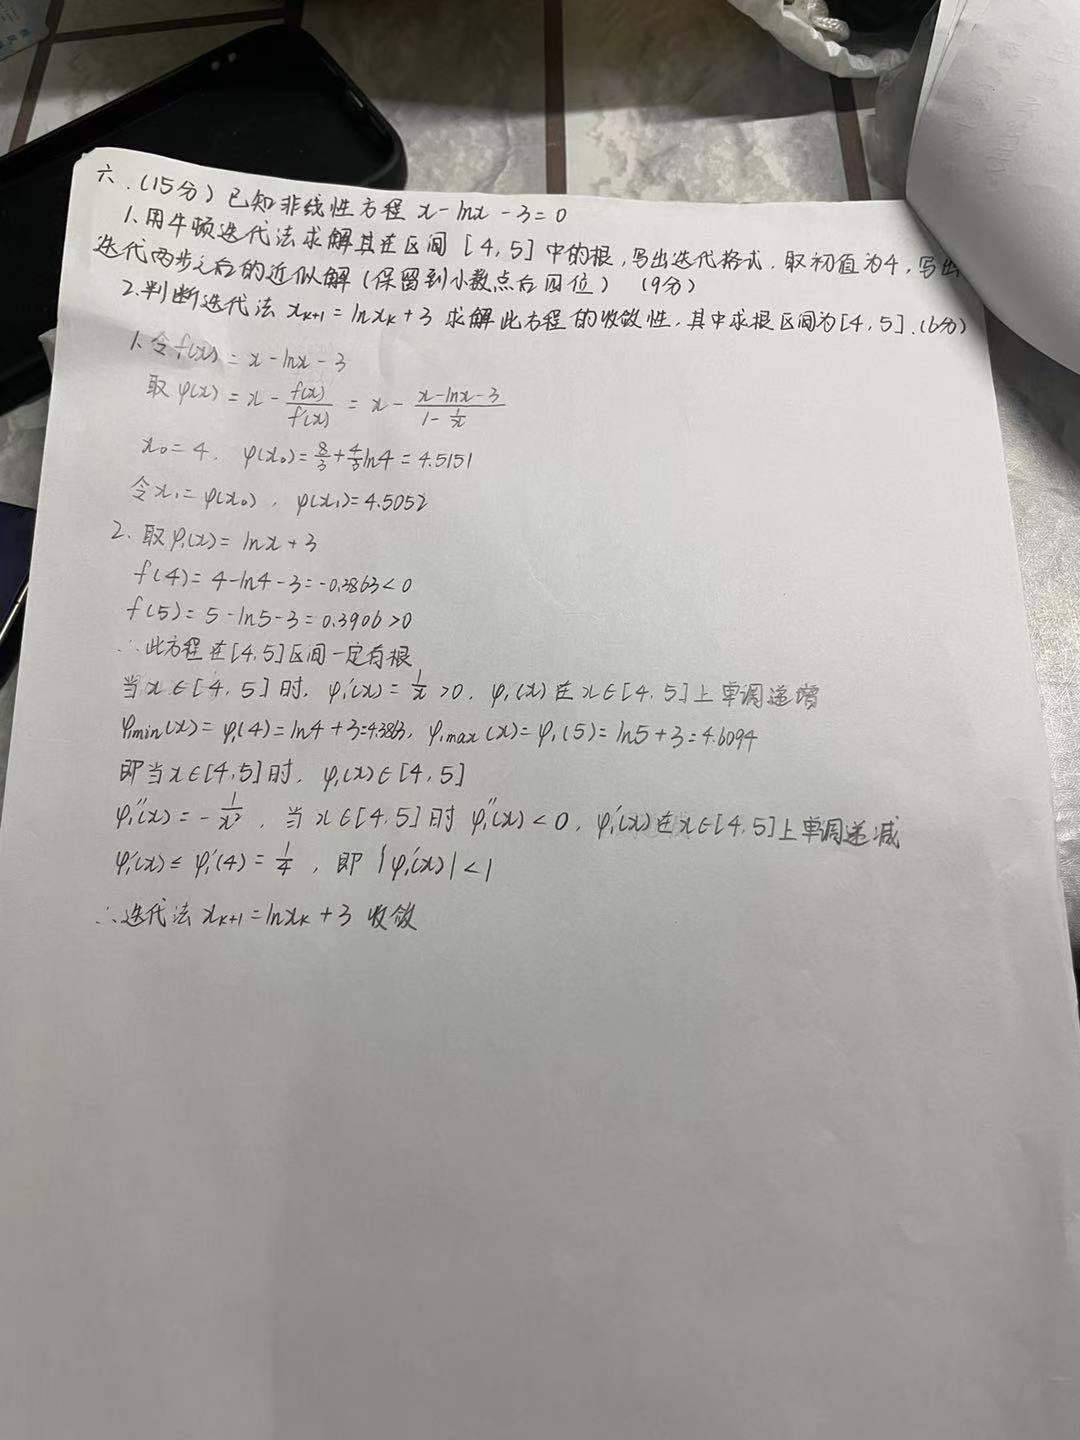 六.(15分)已知非线性方程 x-lnx-3=0
1.用牛顿迭代法求解其在区间[4,5]中的根,写出迭代格式.取初值为4,写出
迭代两步之后的近似解(保留到小数点后四位) (9分)
2.判断迭代法 xₖ₊₁=lnxₖ+3 求解此方程的收敛性,其中求根区间为[4,5].(6分)
1.令f(x)=x-lnx-3
取φ(x)=x-f(x)/f'(x)=x-(x-lnx-3)/(1-1/x)
x₀=4. φ(x₀)=8/3+4/3ln4=4.5151
令x₁=φ(x₀), φ(x₁)=4.5052
2.取φ₁(x)=lnx+3
f(4)=4-ln4-3=-0.3863<0
f(5)=5-ln5-3=0.3906>0
∴此方程在[4,5]区间一定有根
当x∈[4,5]时,φ₁'(x)=1/x>0,φ₁(x)在x∈[4,5]上单调递增
φ₁min(x)=φ₁(4)=ln4+3=4.3863,φ₁max(x)=φ₁(5)=ln5+3=4.6094
即当x∈[4,5]时,φ₁(x)∈[4,5]
φ₁''(x)=-1/x²,当x∈[4,5]时φ₁''(x)<0,φ₁'(x)在x∈[4,5]上单调递减
φ₁'(x)≤φ₁'(4)=1/4,即|φ₁'(x)|<1
∴迭代法xₖ₊₁=lnxₖ+3 收敛